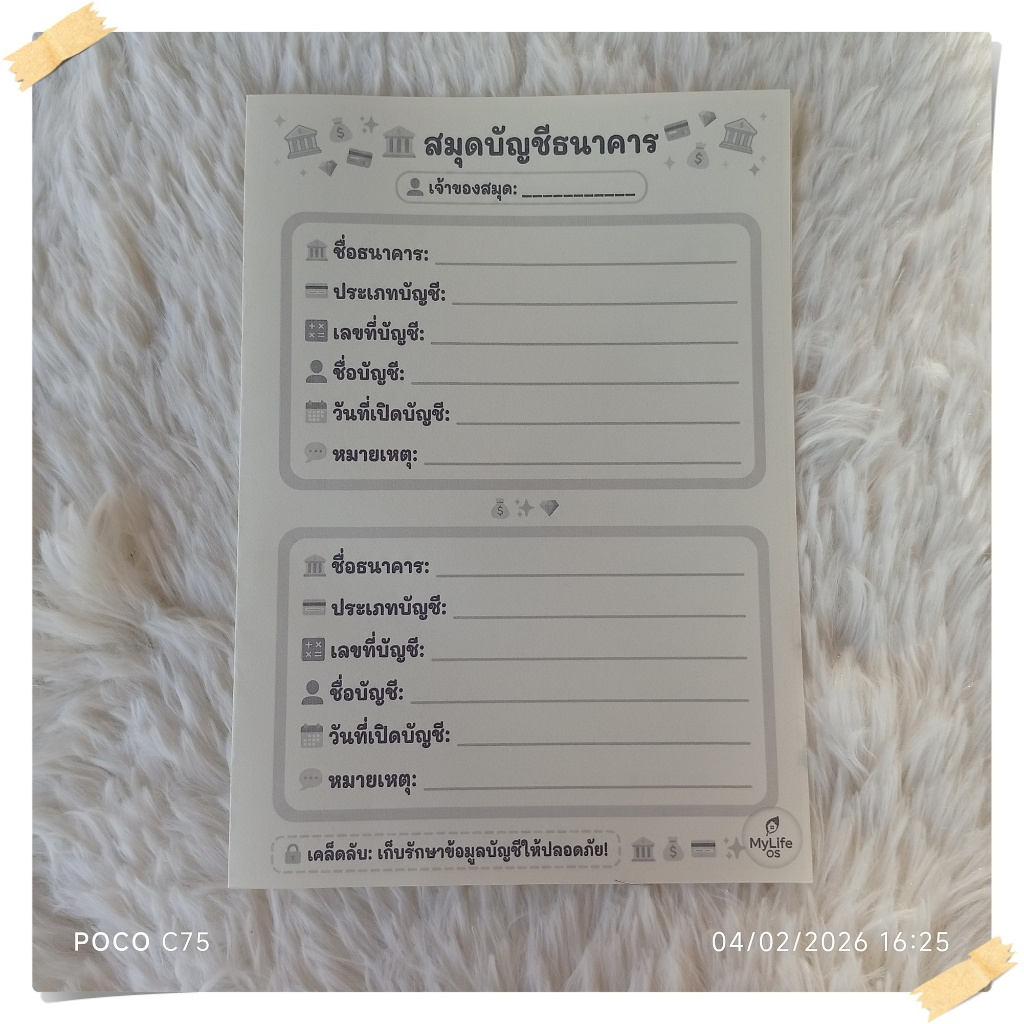 สมุดบัญชีธนาคาร
เจ้าของสมุด: ___________
ชื่อธนาคาร:
ประเภทบัญชี:
เลขที่บัญชี:
ชื่อบัญชี:
วันที่เปิดบัญชี:
หมายเหตุ:
ชื่อธนาคาร:
ประเภทบัญชี:
เลขที่บัญชี:
ชื่อบัญชี:
วันที่เปิดบัญชี:
หมายเหตุ:
เคล็ดลับ: เก็บรักษาข้อมูลบัญชีให้ปลอดภัย!
MyLife
OS
POCO C75
04/02/2026 16:25